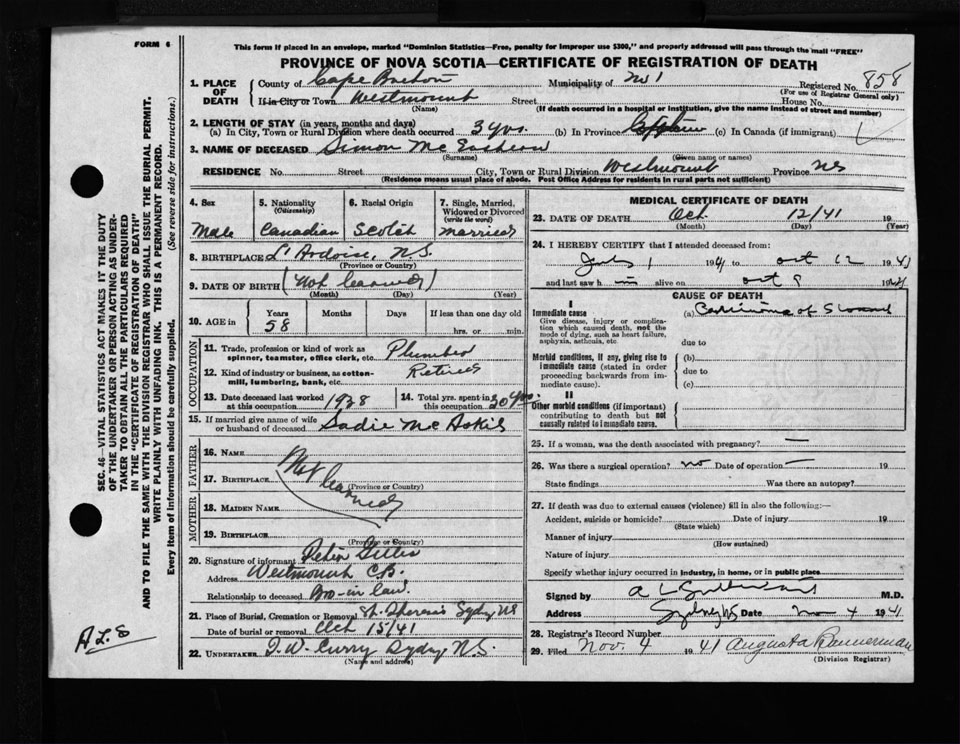 FORM 6
This form if placed in an envelope, marked "Dominion Statistics—Free, penalty for improper use $300," and properly addressed will pass through the mail "FREE"
PROVINCE OF NOVA SCOTIA—CERTIFICATE OF REGISTRATION OF DEATH
1. PLACE OF DEATH County of Cape Breton Municipality of No 1 Registered No. 858
(For use of Registrar General only)
If in City or Town Westmount Street House No.
(Name) (If death occurred in a hospital or institution, give the name instead of street and number)
2. LENGTH OF STAY (in years, months and days)
(a) In City, Town or Rural Division where death occurred 3 yrs. (b) In Province (c) In Canada (if immigrant)
3. NAME OF DECEASED Simon Mc Eachern
(Surname) (Given name or names)
RESIDENCE No. Street City, Town or Rural Division Westmount Province NS
(Residence means usual place of abode. Post Office Address for residents in rural parts not sufficient)
4. Sex Male
5. Nationality (Citizenship) Canadian
6. Racial Origin Scotch
7. Single, Married, Widowed or Divorced (write the word) Married
8. BIRTHPLACE L'Ardoise, N.S.
(Province or Country)
9. DATE OF BIRTH (Not learned)
(Month) (Day) (Year)
10. AGE in Years 58 Months Days If less than one day
hrs. or min.
OCCUPATION
11. Trade, profession or kind of work as spinner, teamster, office clerk, etc. Plumber
12. Kind of industry or business, as cotton-mill, lumbering, bank, etc. Retired
13. Date deceased last worked at this occupation 1928
14. Total yrs. spent in this occupation 20 yrs.
15. If married give name of wife or husband of deceased Sadie Mc Askil
FATHER
16. NAME
17. BIRTHPLACE Not learned
(Province or Country)
MOTHER
18. MAIDEN NAME
19. BIRTHPLACE
(Province or Country)
20. Signature of informant Peter Gillis
Address Westmount C.B.
Relationship to deceased Bro-in law
21. Place of Burial, Cremation or Removal St. Theresis Sydney NS
Date of burial or removal Oct 15/41
22. UNDERTAKER J. W. Curry Sydney N.S.
(Name and address)
MEDICAL CERTIFICATE OF DEATH
23. DATE OF DEATH Oct. 12/41 19
(Month) (Day) (Year)
24. I HEREBY CERTIFY that I attended deceased from:
July 1 1941 to Oct 12 1941
and last saw him alive on Oct 9 1941
CAUSE OF DEATH
I
Immediate cause
Give disease, injury or complication which caused death, not the mode of dying, such as heart failure, asphyxia, asthenia, etc.
(a) Carcinoma of Stomach
due to
Morbid conditions, if any, giving rise to immediate cause (stated in order proceeding backwards from immediate cause)
(b)
due to
(c)
II
Other morbid conditions (if important) contributing to death but not causally related to immediate cause.
25. If a woman, was the death associated with pregnancy? —
26. Was there a surgical operation? no Date of operation — 19
State findings Was there an autopsy?
27. If death was due to external causes (violence) fill in also the following:—
Accident, suicide or homicide? Date of injury 19
(State which)
Manner of injury
(How sustained)
Nature of injury
Specify whether injury occurred in industry, in home, or in public place
Signed by A L Sutherland M.D.
Address Sydney NS Date Nov 4 1941
28. Registrar's Record Number
29. Filed Nov. 4 1941 Augusta Bannerman
(Division Registrar)
SEC. 46—VITAL STATISTICS ACT MAKES IT THE DUTY
OF THE UNDERTAKER OR PERSON ACTING AS UNDER-
TAKER TO OBTAIN ALL THE PARTICULARS REQUIRED
IN THE "CERTIFICATE OF REGISTRATION OF DEATH"
AND TO FILE THE SAME WITH THE DIVISION REGISTRAR WHO SHALL ISSUE THE BURIAL PERMIT.
WRITE PLAINLY WITH UNFADING INK. THIS IS A PERMANENT RECORD.
Every item of information should be carefully supplied. (See reverse side for instructions.)
A.L.S